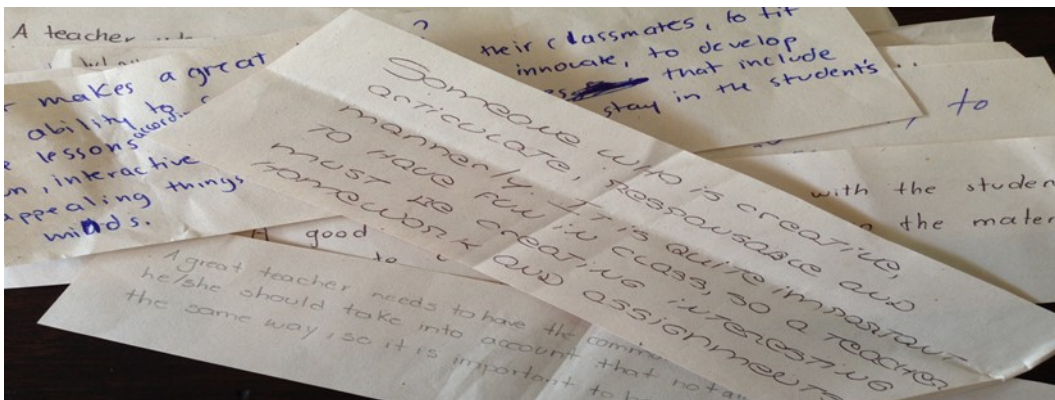 A teacher
makes a great
ability to
lessons
interactive
appealing things
minds.
their classmates, to fit
innovate, to develop
that include
stay in the student's
to
Someone who is creative,
articulate, responsable and
mannerly. It is quite important
to have fun in class, so a teacher
must be creating interesting
homework and assignments
with the studen
the mater
A good
to
A great teacher needs to have the comm
he/she should take into account that not all
the same way, so it is important
to be